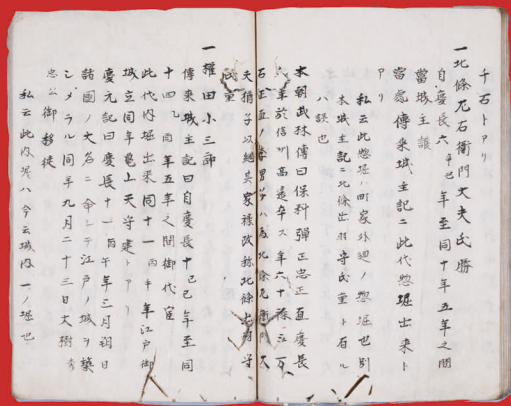 千石トアリ
一北條左右衛門大夫氏勝
自慶長六辛丑年至同十年五年之間
當城主護
當處傳来城主記ニ此代惣堀出来ト
アリ
私云此惣堀ハ町家外廻ノ惣堀也別
本城主記ニ北條出羽守氏重ト有ル
ハ誤也
本朝武林傳曰保科弾正忠正直慶長
六年於信州高遠卒ス年六十禄三万
石正直ノ
天猶子以継其家禄改称北條出羽守
氏重
一櫻田小三郎
傳来城主記曰自慶長十乙巳年至同
十四己酉年五年之間御代官
此代内堀出来同十一丙午年江戸御
城立同年亀上天守建トアリ
慶元記曰慶長十一丙午年三月朔日
諸國ノ大名ニ命シテ江戸ノ城ヲ築
シメラル同年九月二十三日大樹秀
忠公御移徙
私云此内堀ハ今云城内一ノ堀也